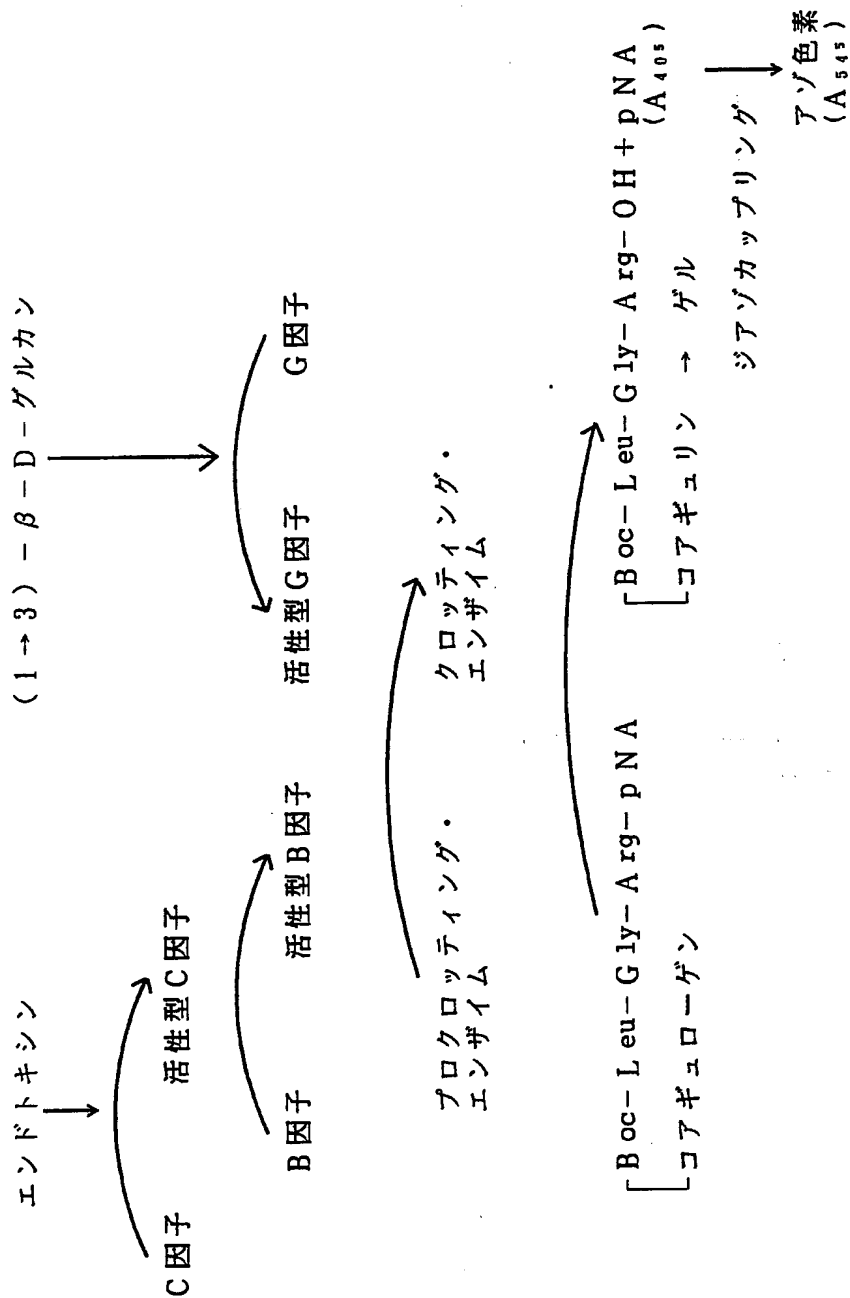 エンドトキシン
(1→3)-β-D-グルカン
C因子
活性型C因子
B因子
活性型B因子
活性型G因子
G因子
プロクロッティング・
エンザイム
クロッティング・
エンザイム
Boc-Leu-Gly-Arg-pNA
コアギュローゲン
Boc-Leu-Gly-Arg-OH+pNA
(A405)
コアギュリン → ゲル
ジアゾカップリング
アゾ色素
(A545)